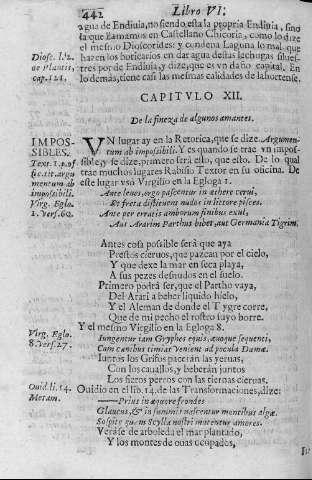 442
Libro VI;
agua de Endiuia, no siendo esta la propria Endiuia, sino
la que llamamos en Castellano Chicoria, como lo dize
el mesmo Dioscorides: y condena Laguna lo mal que
hazen los boticarios en dar agua destas lechugas silues-
tres por de Endiuia, y dize, que es vn daño capital. En
lo demàs, tiene casi las mesmas calidades de la hortense.
Diosc. li. 2.
de Plantis,
cap. 121.
CAPITVLO XII.
De la fineza de algunos amantes.
IMPOS-
SIBILES.
Text. 1. p. of
fic. tit. argu
mentum ab
impossibili.
Virg. Eglo.
1. Vers. 60.
VN lugar ay en la Retorica, que se dize Argumen-
tum ab impossibili. Y es quando se trae vn impos-
sible, y se dize, primero serà esto, que esto. De lo qual
trae muchos lugares Rabisio Textor en su oficina. De
este lugar vsò Virgilio en la Egloga 1.
Ante leues, ergo pascentur in æthere cerui,
Et freta distituent nudos in littore pisces.
Ante per erratis amborum finibus exul,
Aut Ararim Parthus bibet, aut Germania Tigrim.
Antes cosa possible serà que aya
Prestos cieruos, que pazcan por el cielo,
Y que dexe la mar en seca playa,
A sus pezes desnudos en el suelo.
Primero podrà ser, que el Partho vaya,
Del Arari a beber liquido hielo,
Y el Aleman de donde el Tygre corre,
Que de mi pecho el rostro suyo borre.
Y el mesmo Virgilio en la Egloga 8.
Virg. Eglo.
8. Vers. 27.
Iungentur iam Gryphes equis, æuoque sequenti,
Cum canibus timidæ Venient ad pocula Damæ.
Iuntos los Grifos pacerán las yeruas,
Con los cauallos, y beberán juntos
Los fieros perros con las tiernas cieruas.
Ouid. li. 14.
Metam.
Ouidio en el lib. 14. de las Transformaciones, dize:
Prius in æquore frondes
Glaucus, & in summis nascentur montibus algæ.
Sospite quam Scylla nostri mutentur amores.
Veràse de arboleda el mar plantado,
Y los montes de ouas ocupados,